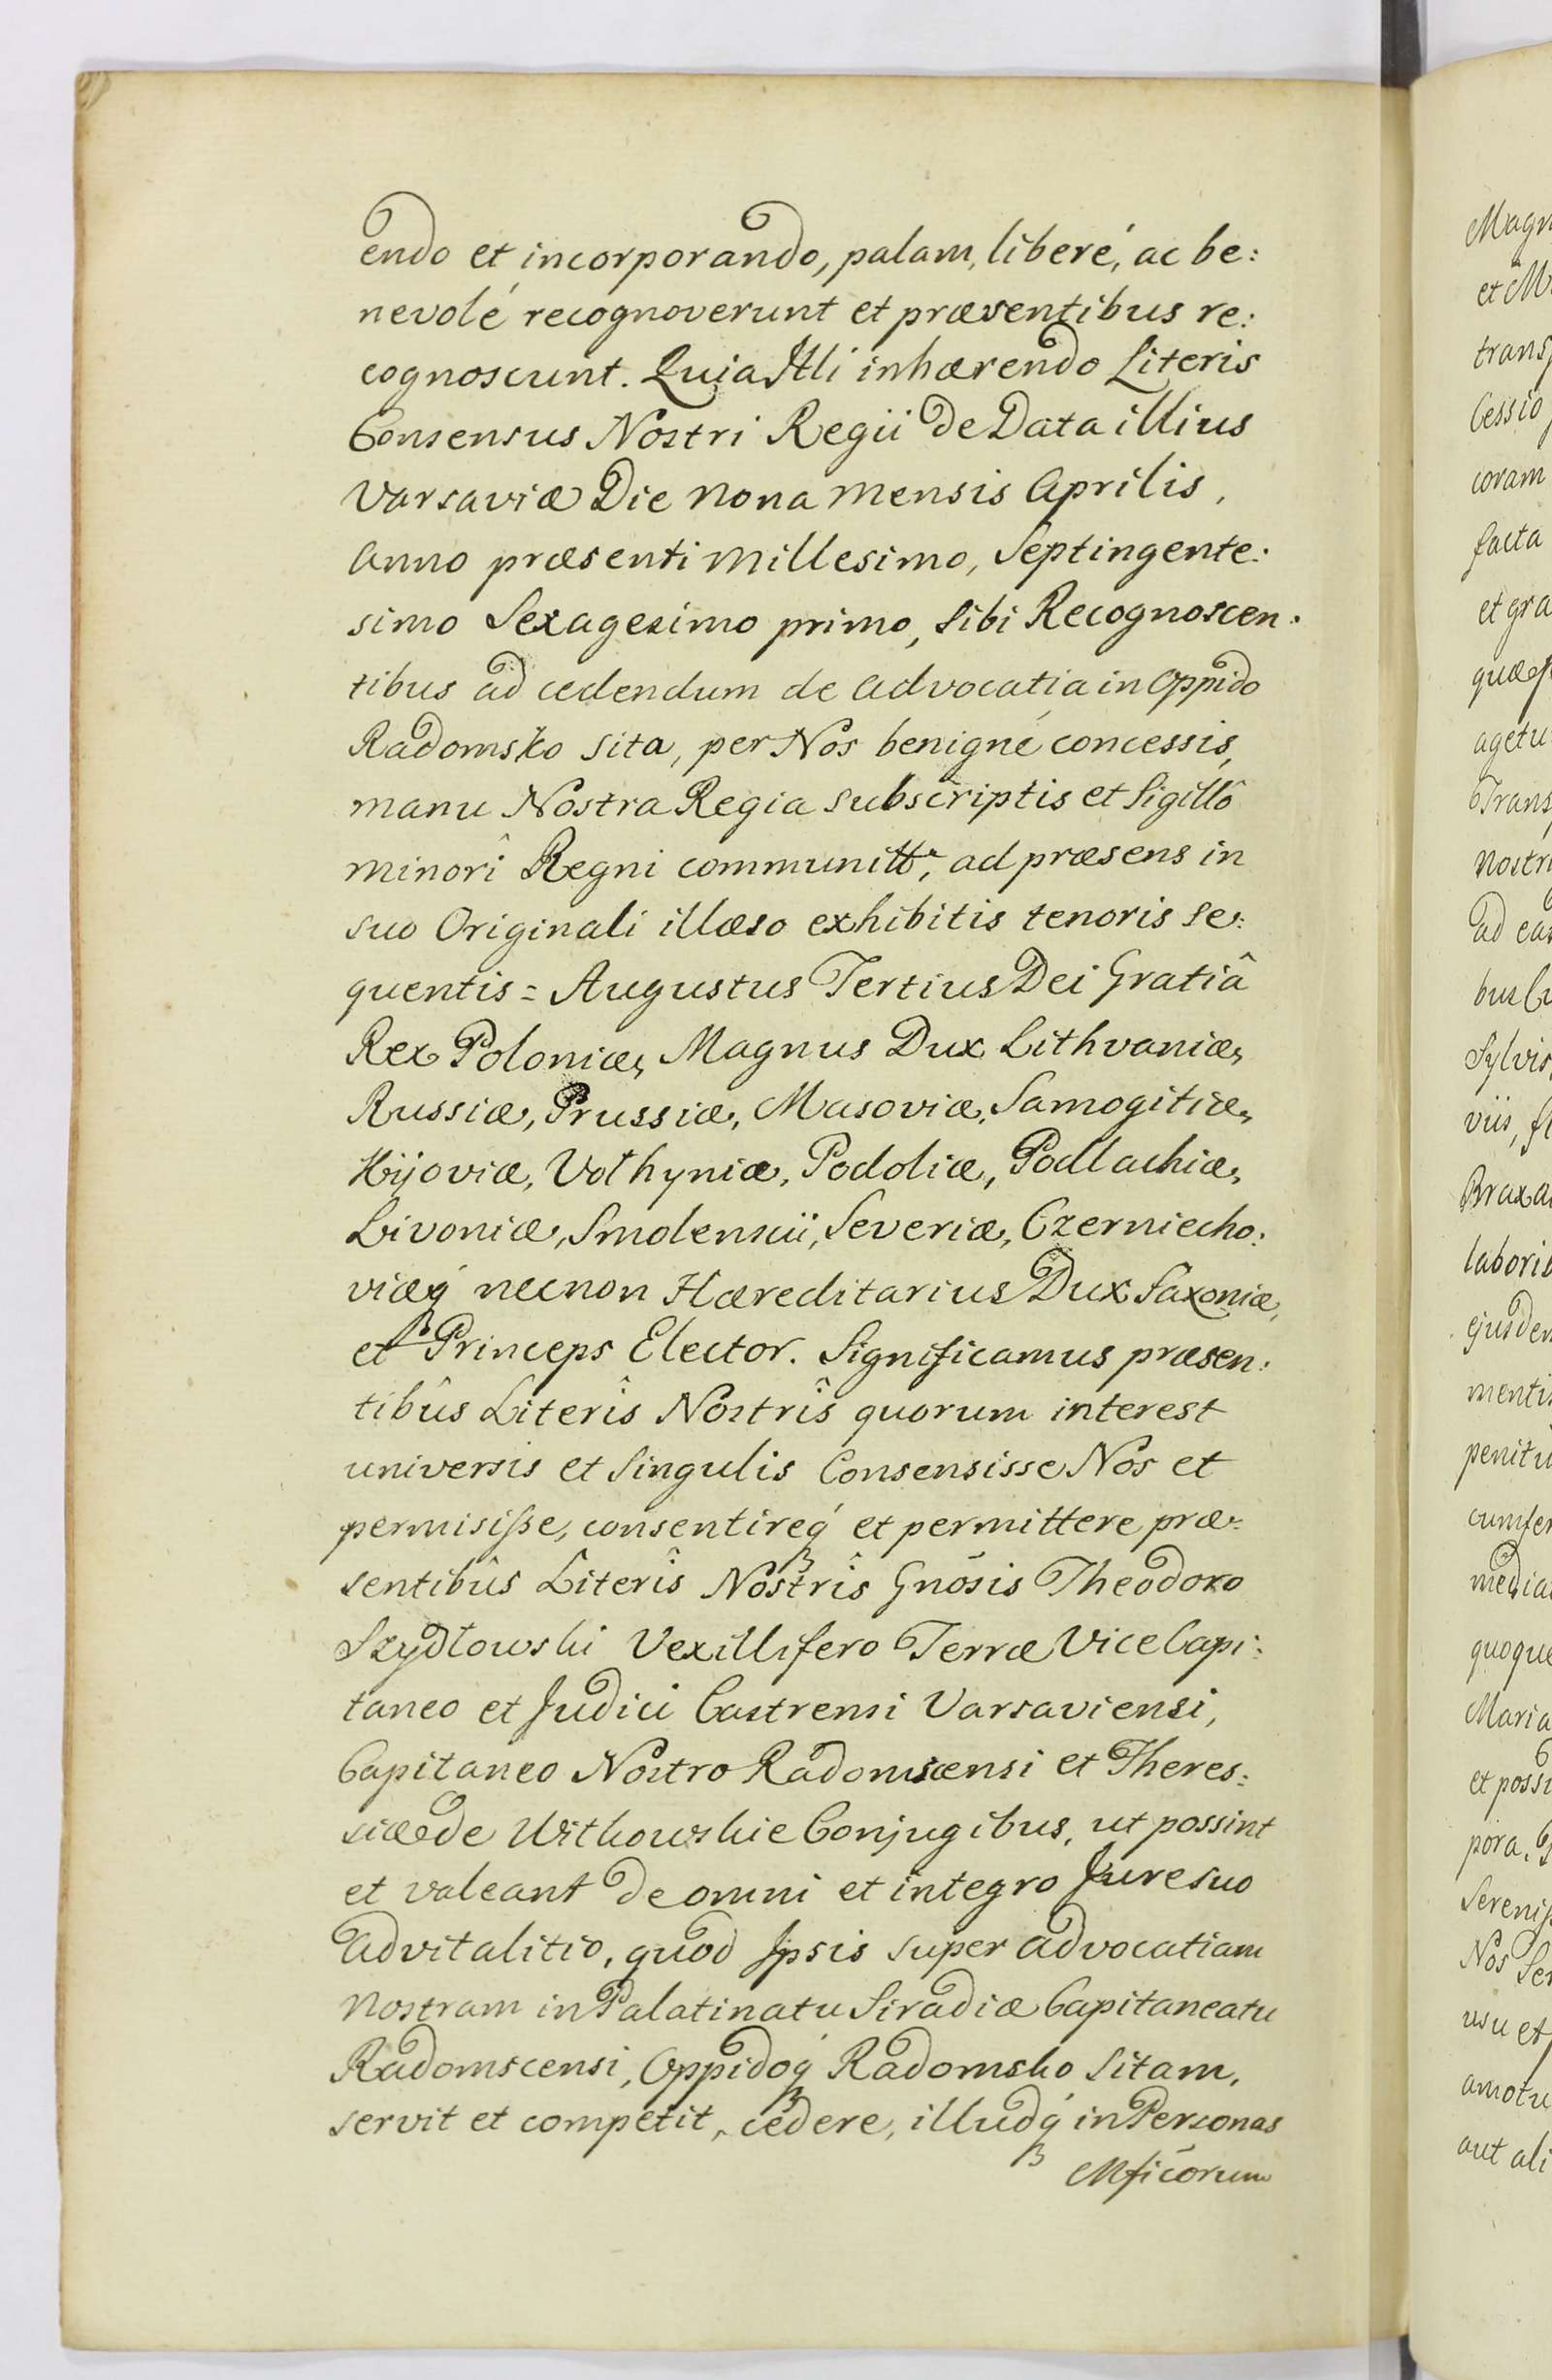 endo et incorporando, palam, liberé, ac be:
nevolé recognoverunt et præsentibus re:
cognoscunt. Quia Illi inhærendo Literis
Consensus Nostri Regii de Data illius
Varsaviæ Die nona mensis Aprilis,
Anno præsenti millesimo, Septingente:
simo Sexagesimo primo, sibi Recognoscen:
tibus ad cedendum de advocatia in oppido
Radomsko sita, per Nos benigné concessis,
manu Nostra Regia subscriptis et Sigillô
minorî Regni communitt, ad præsens in
suo Originali illæso exhibitis tenoris se:
quentis = Augustus Tertius Dei Gratiâ
Rex Poloniæ, Magnus Dux Lithvaniæ,
Russiæ, Prussiæ, Masoviæ, Samogitiæ,
Kijoviæ, Volhyniæ, Podoliæ, Podlachiæ,
Livoniæ, Smolensciï, Severiæ, Czerniecho:
viæq́ necnon Hæreditarius Dux Saxoniæ,
et Princeps Elector. Significamus præsen:
tibûs Literîs Nostrîs quorum interest
universis et singulis Consensisse Nos et
permisiſse, consentireq́ et permittere præ:
sentibûs Literîs Nostrîs Gnōsis Theodoro
Szydłowski Vexillifero Terræ ViceCapi:
taneo et Judici Castrensi Varsaviensi,
Capitaneo Nostro Radomscensi et Theres:
siæ de Witkowskie Conjugibus, ut possint
et valeant de omni et integro Jure suo
advitalitio, quod Ipsis super advocatiam
nostram in Palatinatu Siradiæ Capitaneatu
Radomscensi, Oppidoq́ Radomsko Sitam,
servit et competit, cedere, illudq́ in Personas
Mficōrum
Magn
et M
trans
Cessio
coram
facta
et gra
quæ
agetu
Trans
nostri
ad eas
bus
Sylvis,
viis, fl
Braxa
laborib
ejusdem
menti
penitu
cumfer
media
quoque
Maria
et possi
pora.
Sereniſs
Nos Ser
usu et
amotu
aut ali